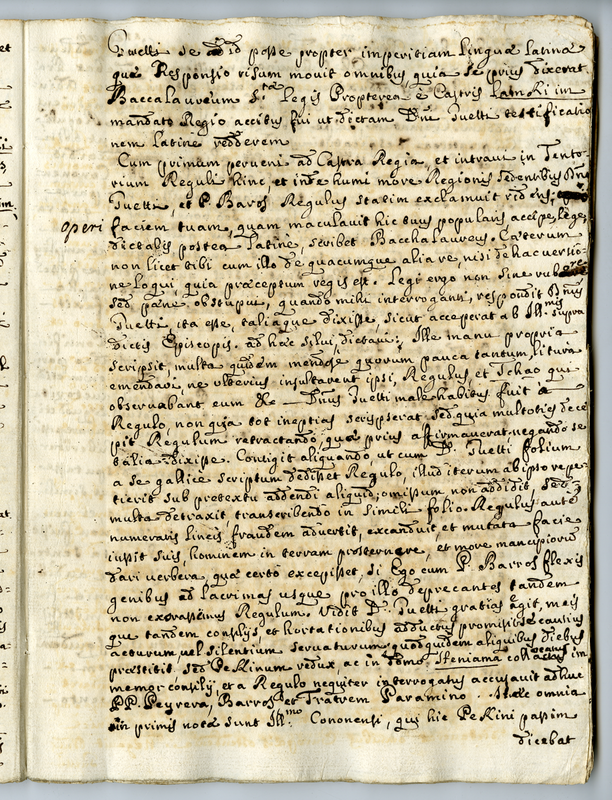 Guetti se ad id posse propter imperitiam linguæ latinæ
quæ Responsio risum movit omnibus, quia se prius dixerat
Baccalaureum Legis Propterea è Castris
mandato Regio accitus fui ut dictam Dni Guetti testificatio
nem latine redderem
Cum primum perveni ad Castra Regia, et intravi in Tento-
rium Reguli hinc, et inde humi more Regionis sedentibus Dno
Guetti, et P. Baros Regulus statim exclamavit
operi faciem tuam, quam maculavit hic tuus popularis accipe, lege,
dictalis postea latine, scribet Bacchalaureus. Cæterum
non licet tibi cum illo de quacumque alia re, nisi de hac versio-
ne loqui, quia præceptum regis est. Legi ergo non sine rubore
sed pæne obstupui, quando mihi interroganti, respondit Dnus
Guetti, ita esse, taliaque dixisse, sicut acceperat ab Illmis supra
dictis Episcopis. ad hæc silui, dictavi; Ille manu propria
scripsit, multa quidem mendose quorum pauca tantum, litura
emendavi, ne ulterius insultarent ipsi, Regulus, et Tchao qui
observabant eum &c Dnus Guetti male habitus fuit a
Regulo, non quia tot ineptias scripserat. Sed quia multoties dece
pit Regulum retractando, quæ prius affirmaverat, negando se
talia dixisse. Contigit aliquando ut cum D. Guetti folium
a se gallice scriptum dedisset Regulo, illud iterum ab ipso repe-
tierit sub protextu addendi aliquid, omissum non addidit, sed
multa detraxit transcribendo in simili folio. Regulus autem
numeratis lineis, fraudem advertit, excanduit, et mutata facie
iussit suis, hominem in terram prosternere, et more mancipiorum
dari verbera, quæ certò excepisset, si Ego cum P. Barros flexis
genibus ad lacrimas usque pro illo deprecantes tandem
non exorassimus Regulum. Vidit D. Guetti gratias agit, meis
que tandem consilijs, et hortationibus adductus promisit se cautius
acturum vel silentium servaturum quod quidem aliquibus diebus
præstitit, sed Pekinum redux, ac in domo, Steniama collocatus im
memor consilij, et a Regulo nequiter interrogatus accusavit adhuc
PP. Peyrera, Barros et Fratrem Paramino. Hæc omnia
in primis nota sunt Illmo Cononensi, qui hic Pekini passim
dicebat